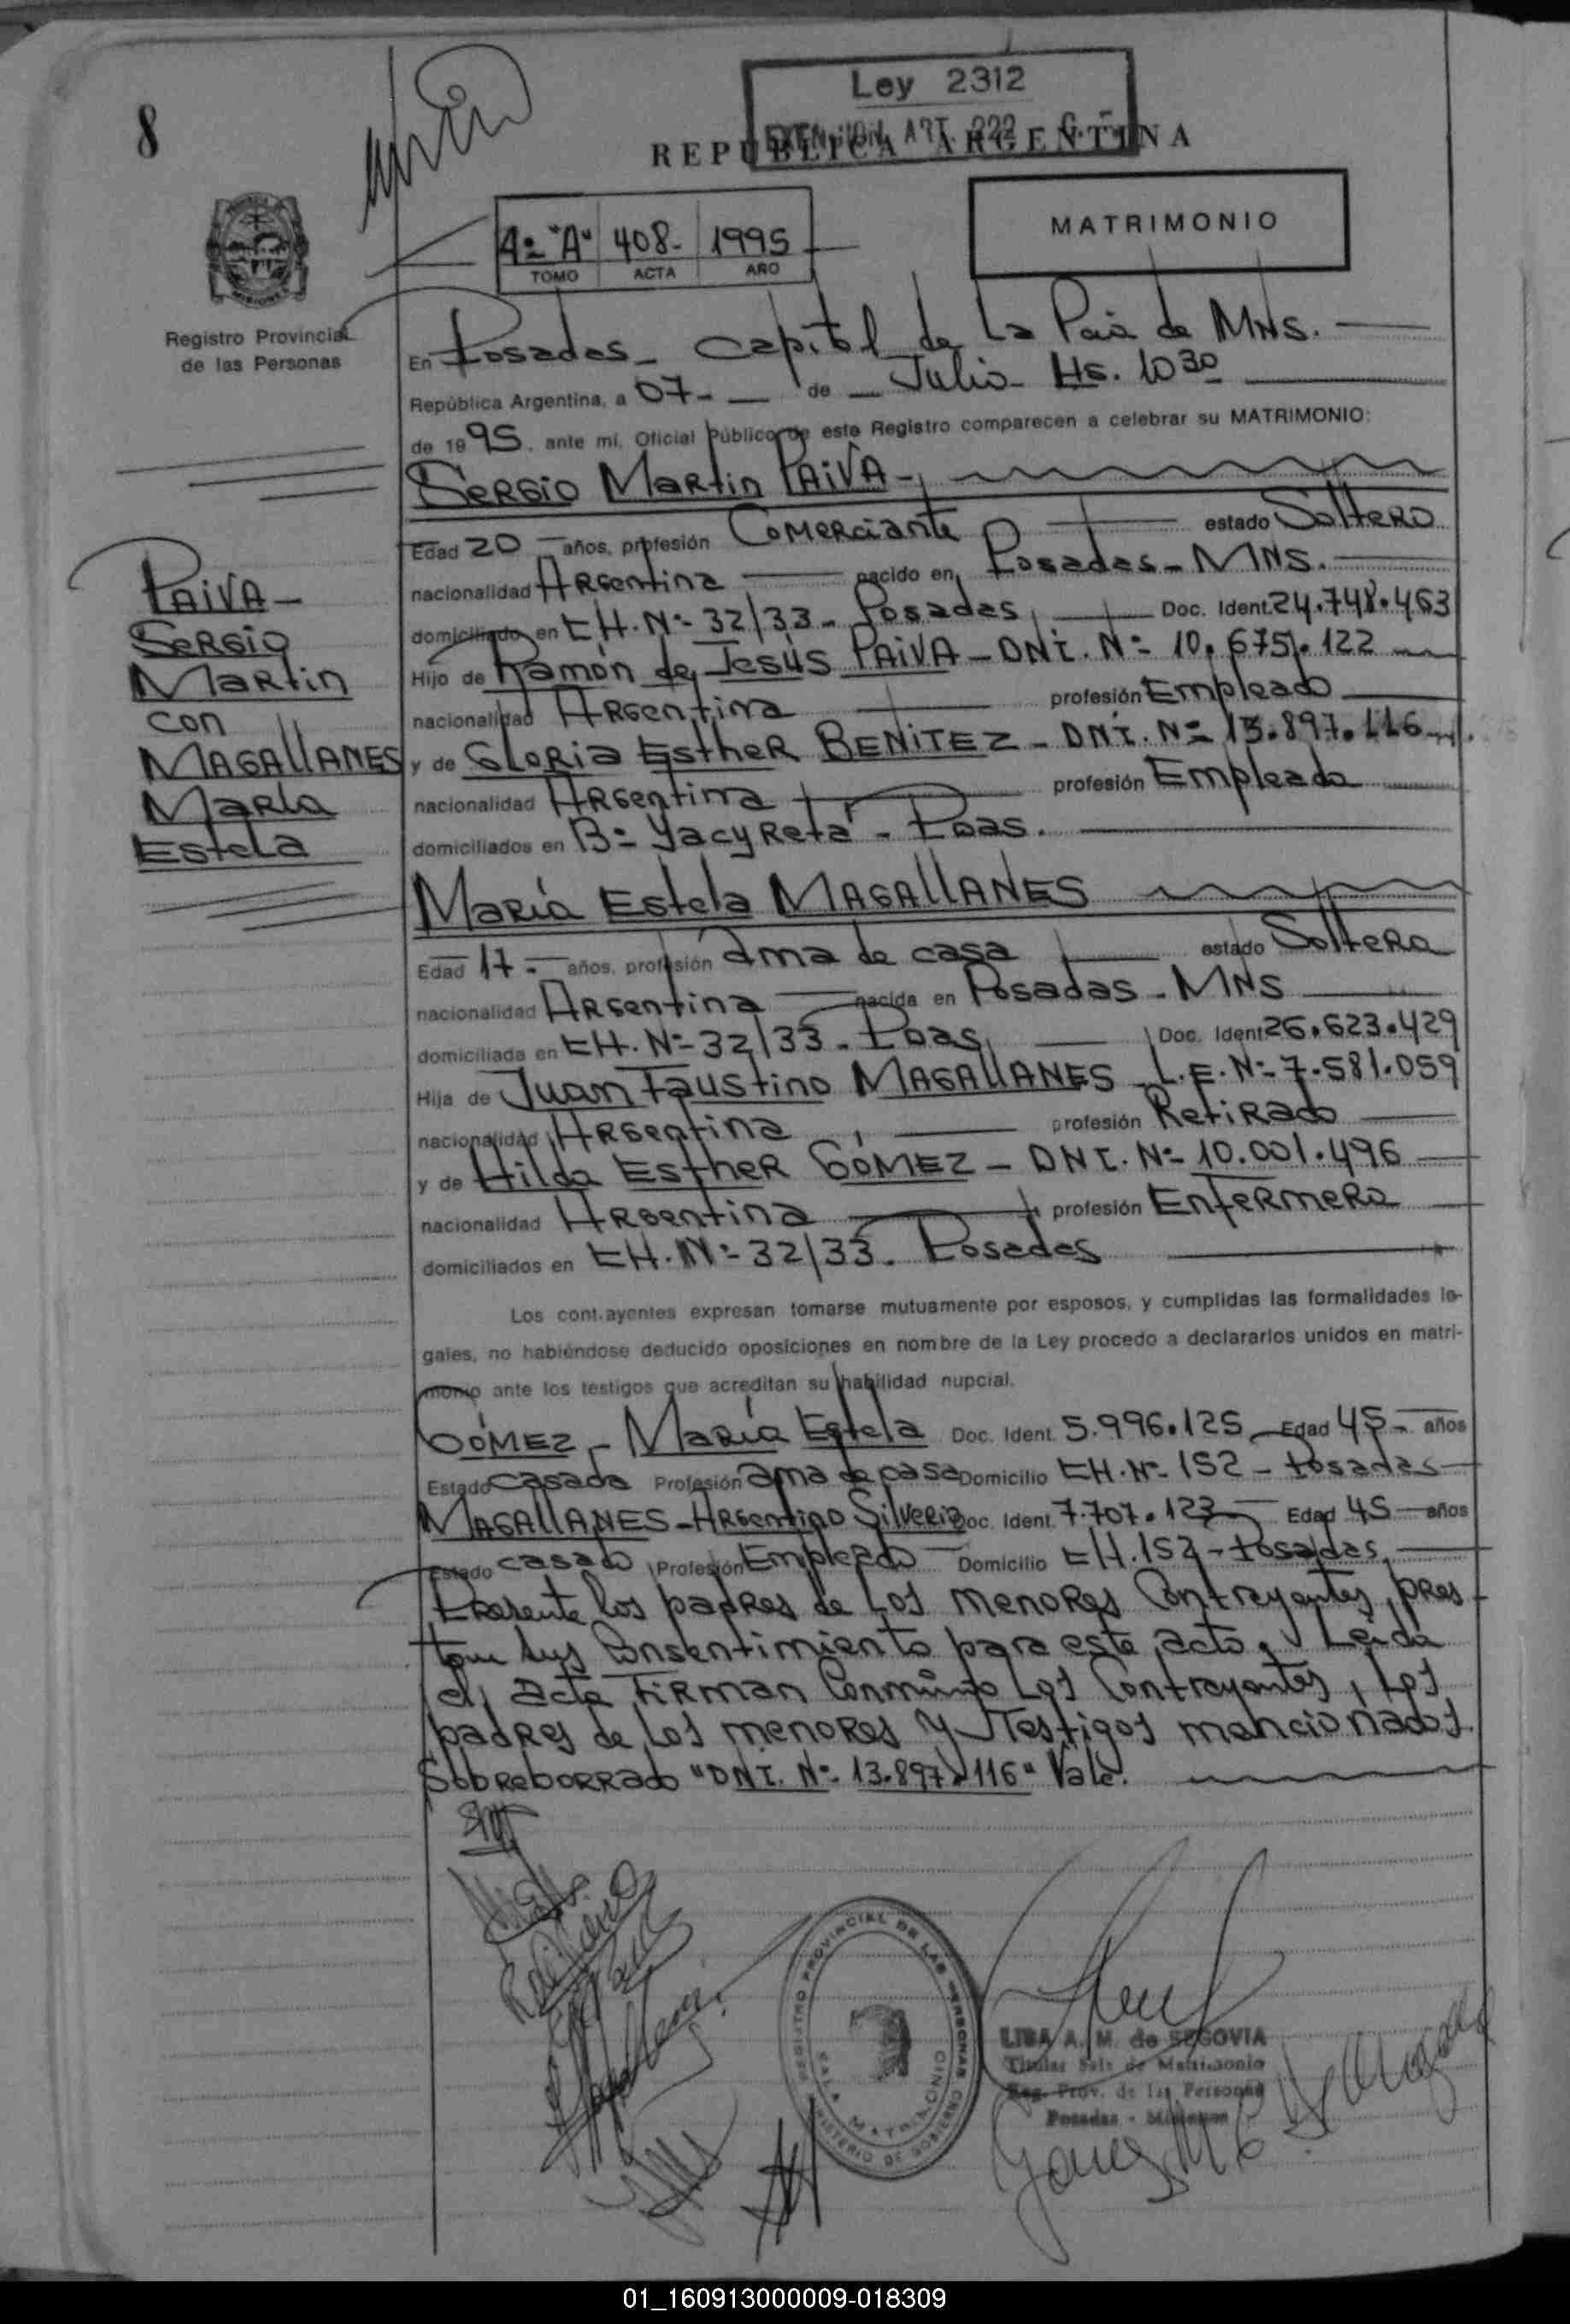 8
Ley 2312
REPUBLICA ARGENTINA
MATRIMONIO
4º "A" 408- 1995
TOMO ACTA AÑO
MISIONES
Registro Provincial
de las Personas
En Posadas - Capital de La Pcia de MNS.
República Argentina, a 07- de Julio - Hs. 10 30
de 1995. ante mi, Oficial Público de este Registro comparecen a celebrar su MATRIMONIO:
Sergio Martin PAIVA -
Edad 20 - años, profesión Comerciante estado Soltero
nacionalidad Argentina nacido en Posadas - MNS.
domiciliado en CH. Nº 32/33 - Posadas Doc. Ident. 24.748.463
Hijo de Ramón de Jesús PAIVA - DNI. Nº 10.675.122
nacionalidad Argentina profesión Empleado
y de Gloria Esther BENITEZ - DNI. Nº 13.897.116
nacionalidad Argentina profesión Empleada
domiciliados en Bº Yacyreta - Pdas.
PAIVA -
Sergio
Martin
con
MAGALLANES
María
Estela
María Estela MAGALLANES
Edad 17 - años, profesión ama de casa estado Soltera
nacionalidad Argentina nacida en Posadas - MNS
domiciliada en CH. Nº 32/33 - Pdas, Doc. Ident 26.623.429
Hija de Juan Faustino MAGALLANES L.E. Nº 7.581.059
nacionalidad Argentina profesión Retirado
y de Hilda Esther GÓMEZ - DNI. Nº 10.001.496
nacionalidad Argentina profesión Enfermera
domiciliados en CH. Nº 32/33. Posadas
Los cont.ayentes expresan tomarse mutuamente por esposos, y cumplidas las formalidades le-
gales, no habiéndose deducido oposiciones en nombre de la Ley procedo a declararlos unidos en matri-
monio ante los testigos que acreditan su habilidad nupcial.
GÓMEZ - María Estela Doc. Ident. 5.996.125 Edad 45 - años
Estado casada Profesión ama de casa Domicilio CH. Nº 152 - Posadas
MAGALLANES - Argentino Silverio Doc. Ident. 7.707.123 Edad 45 años
Estado casado Profesión Empleado Domicilio CH. 152 - Posadas,
Presente los padres de Los menores Contrayentes, pres
tan sus Consentimiento para este acto. Leída
el acta Firman Conmigo Los Contrayentes, Los
padres de Los menores y Testigos mencionados.
Sobreborrado "DNI. Nº 13.897.116" Vale.
REGISTRO PROVINCIAL DE LAS PERSONAS
MINISTERIO DE GOBIERNO
SALA MATRIMONIO
A. M. de SEGOVIA
Titular Sala de Matrimonio
Reg. Prov. de las Personas
Posadas - Misiones
01_160913000009-018309